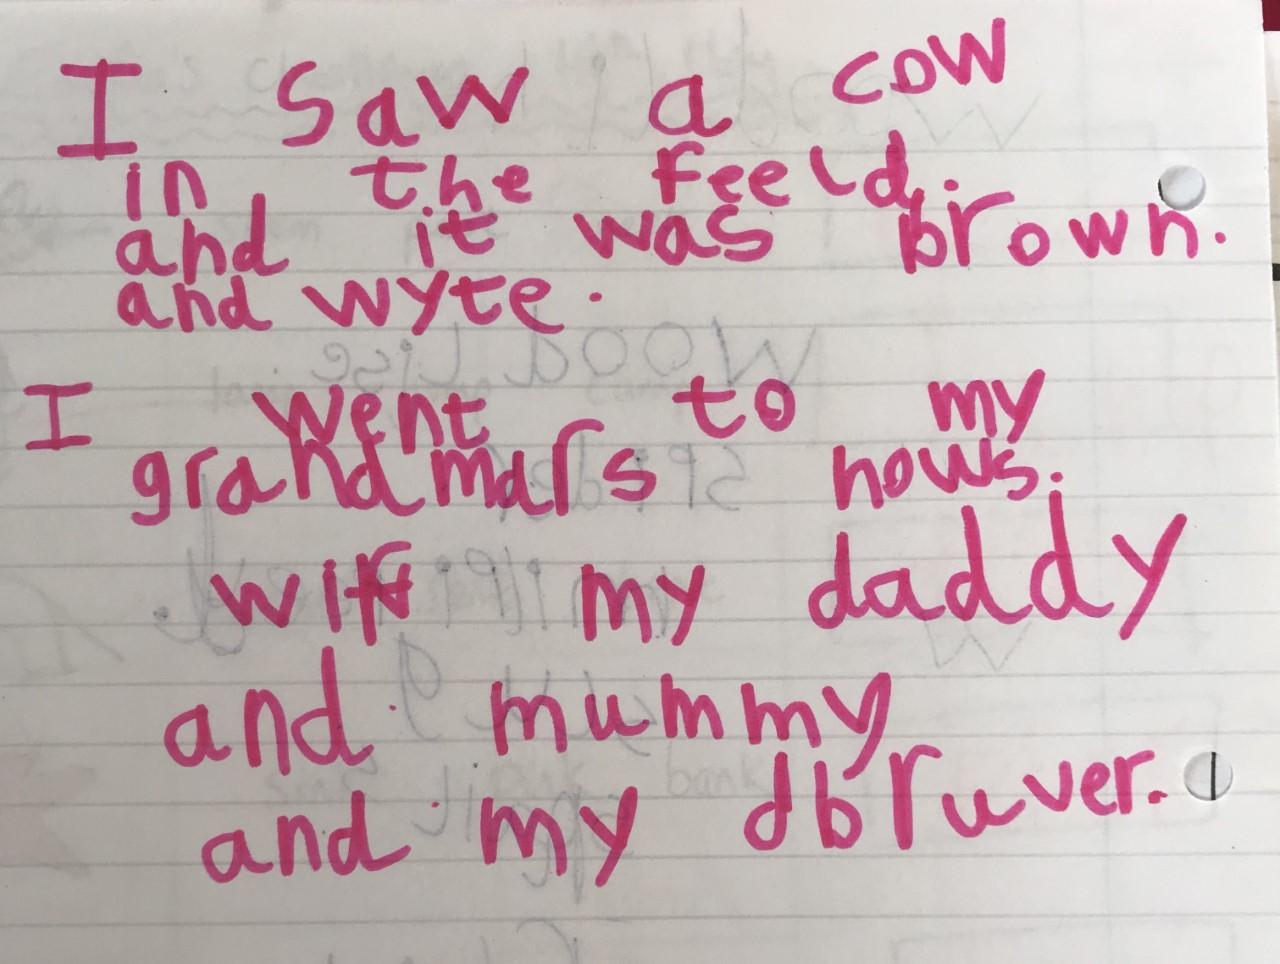 I saw a cow
in the feeld.
and it was brown.
and wyte.
I went to my
grandmars hows.
wif my daddy
and mummy
and my dbruver.